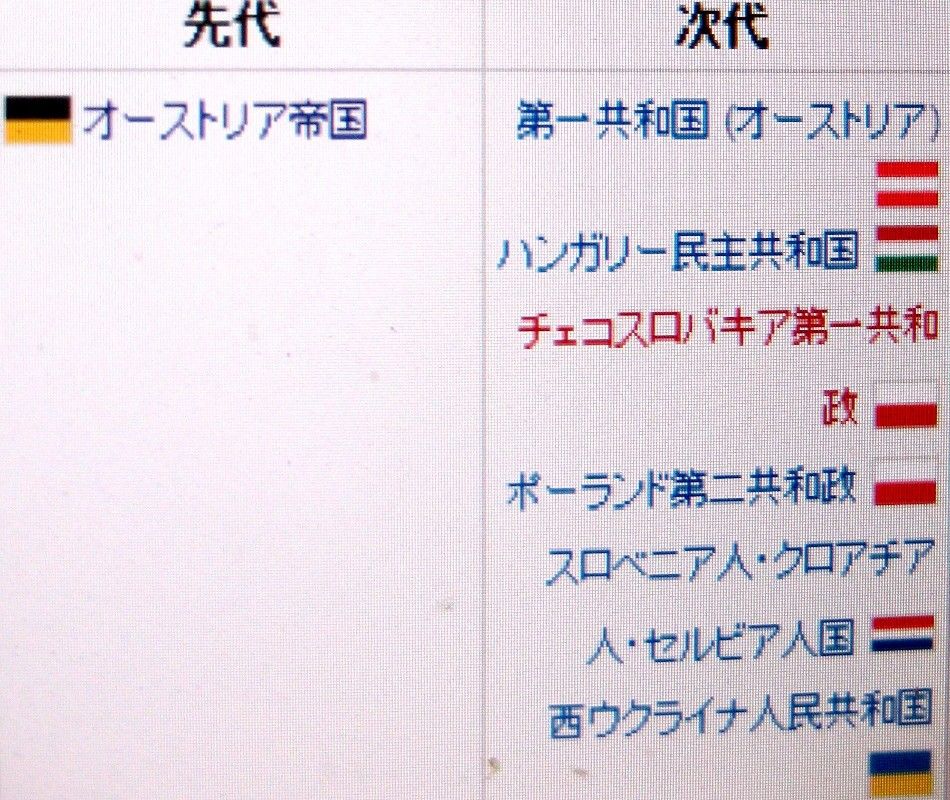 先代
次代
オーストリア帝国
第一共和国 (オーストリア)
ハンガリー民主共和国
チェコスロバキア第一共和
政
ポーランド第二共和政
スロベニア人・クロアチア
人・セルビア人国
西ウクライナ人民共和国